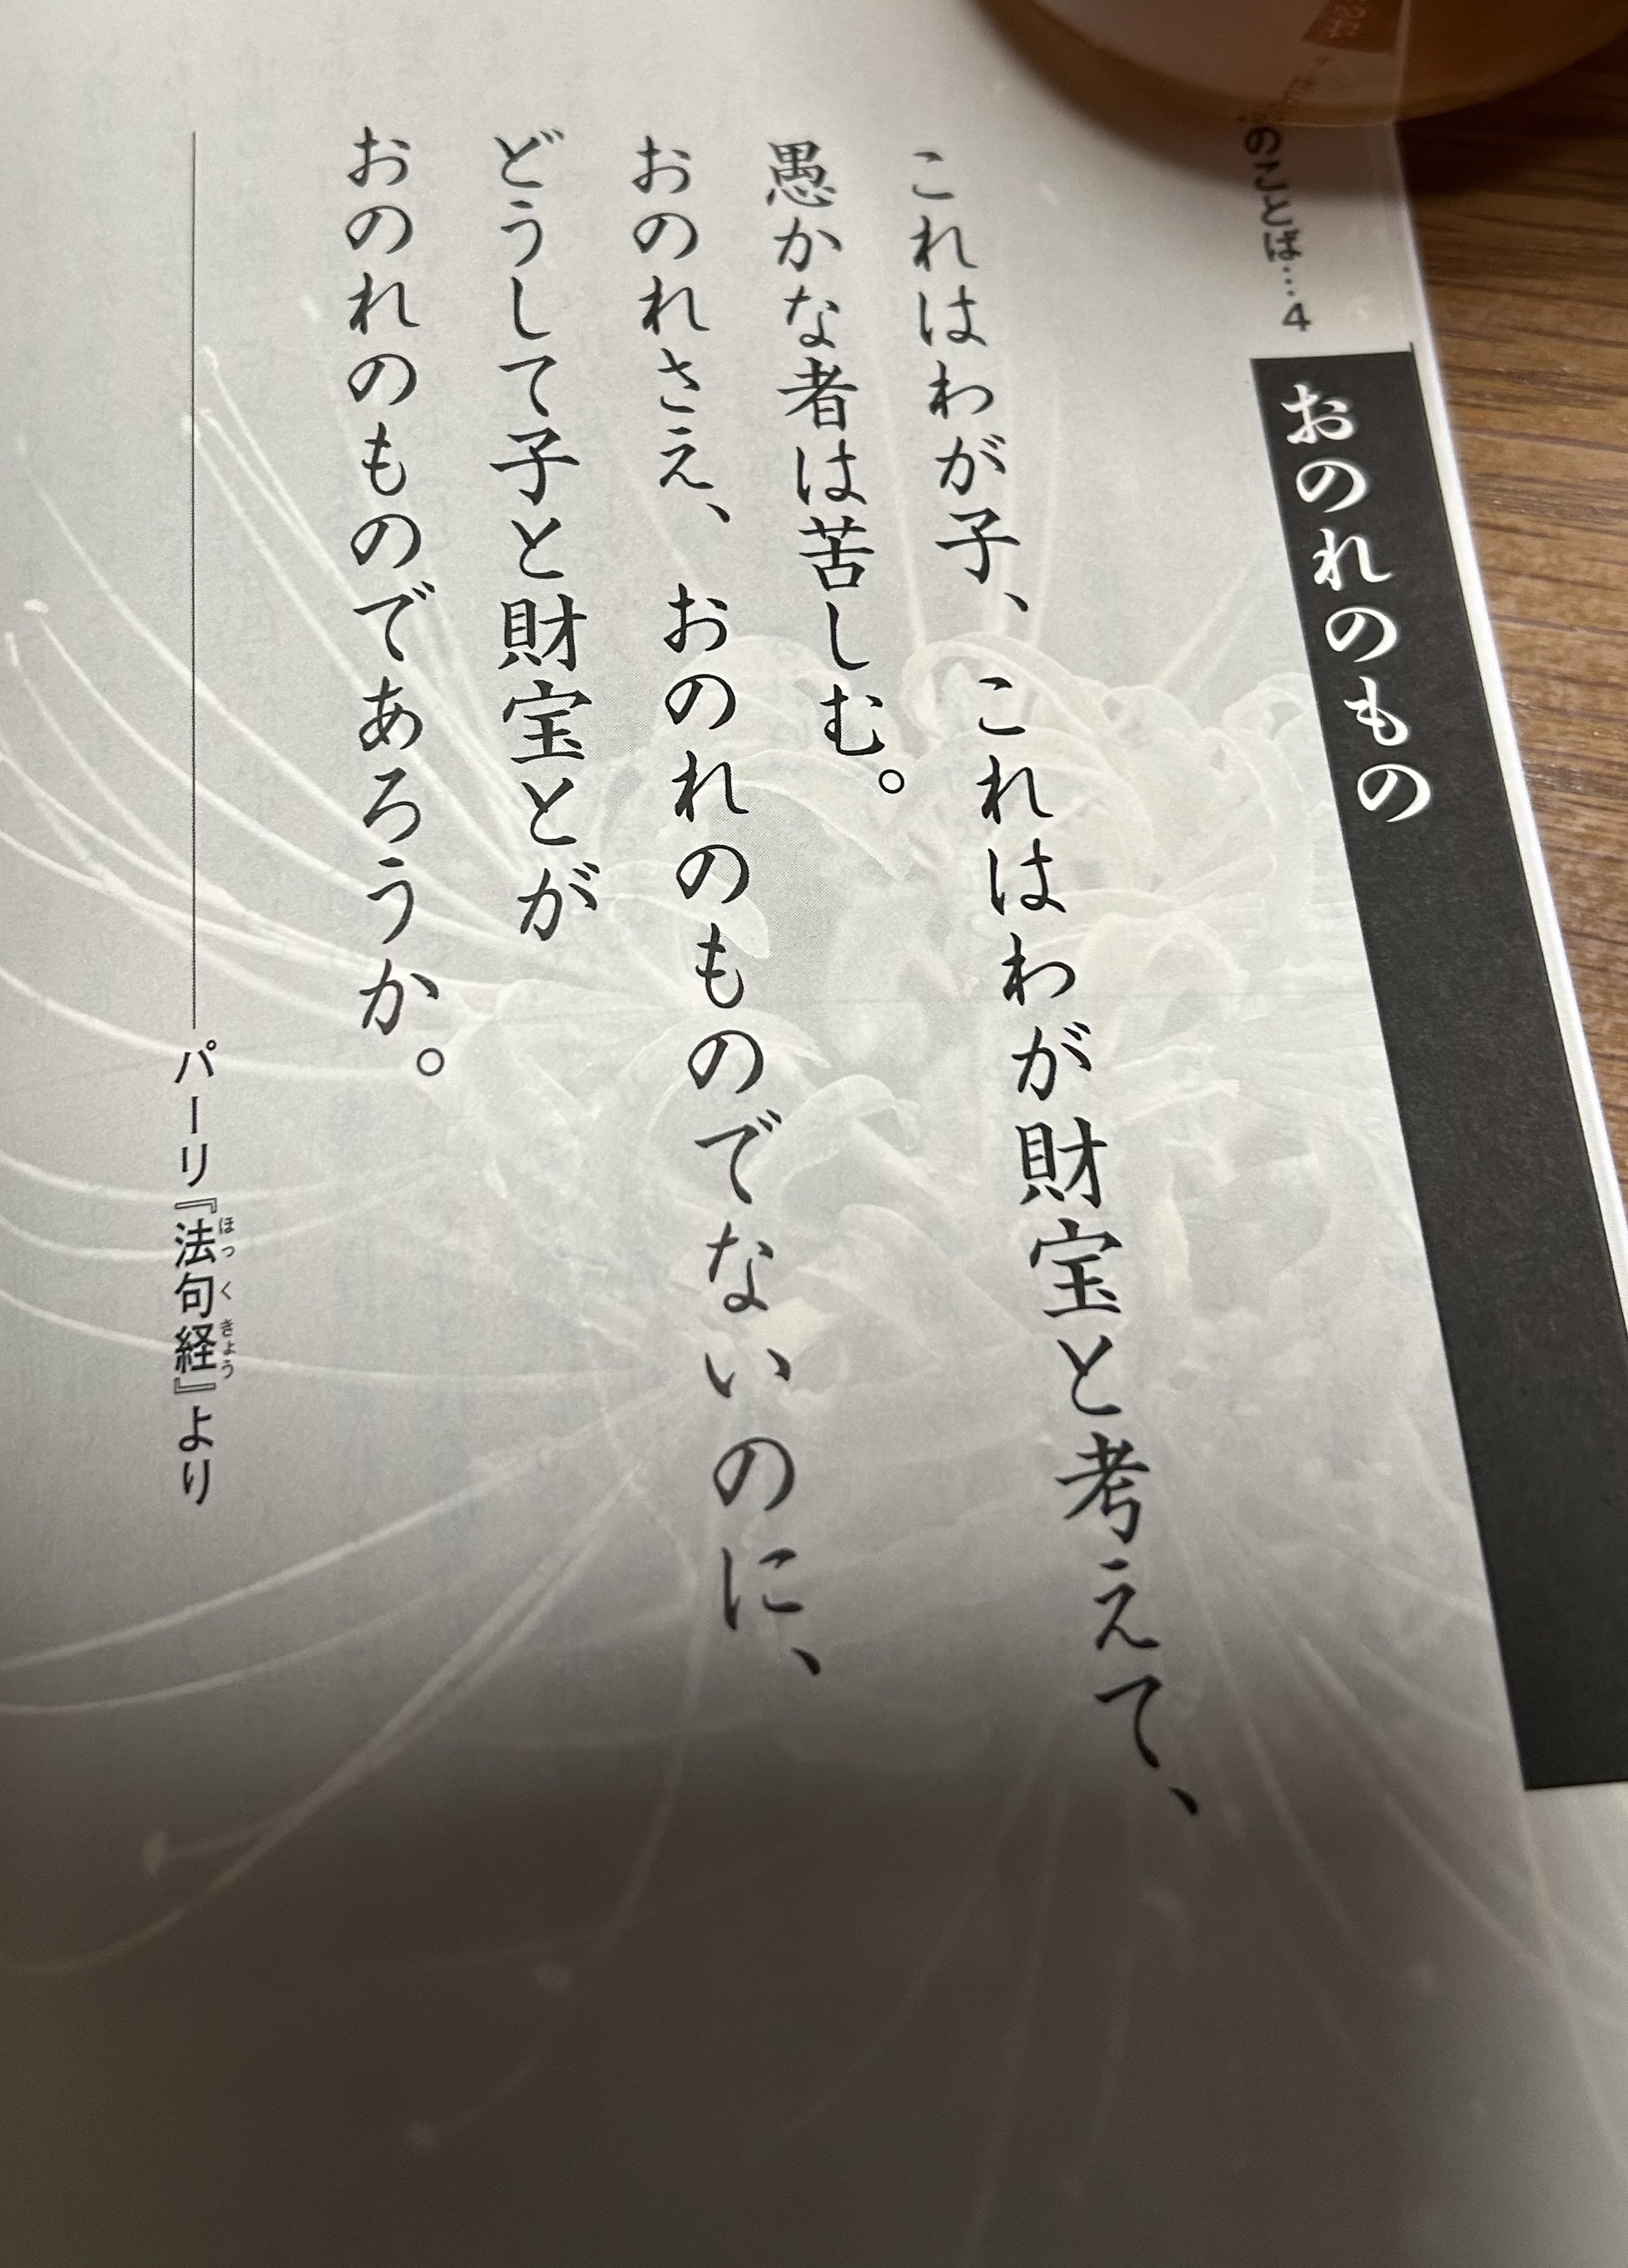 のことば…4
おのれのもの
これはわが子、これはわが財宝と考えて、
愚かな者は苦しむ。
おのれさえ、おのれのものでないのに、
どうして子と財宝とが
おのれのものであろうか。
パーリ『法句経』より
ほっくきょう